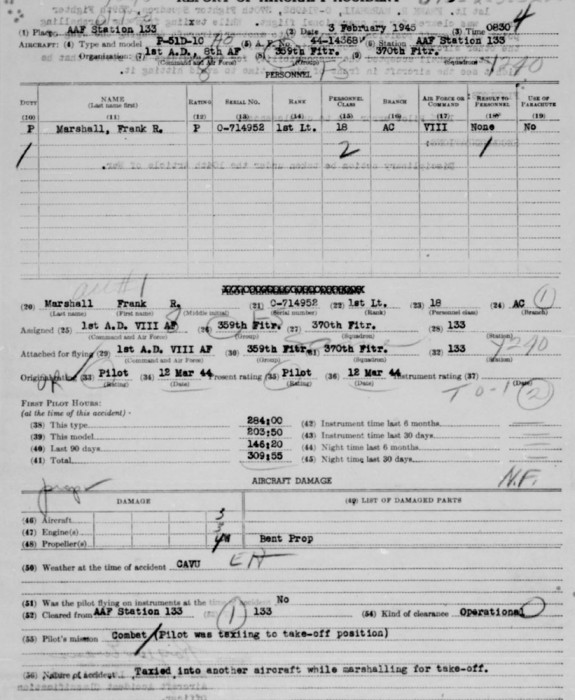 (1) Place AAF Station 133 (2) Date 3 February 1945 (3) Time 0830
AIRCRAFT: (4) Type and model P-51D-10 (5) A. F. No. 44-14368 (6) Station AAF Station 133
Organization: (7) 1st A.D., 8th AF (8) 359th Fitr. (9) 370th Fitr.
(Command and Air Force) (Group) (Squadron)
PERSONNEL
DUTY NAME (Last name first) RATING SERIAL NO. RANK PERSONNEL CLASS BRANCH AIR FORCE OR COMMAND RESULT TO PERSONNEL USE OF PARACHUTE
(10) (11) (12) (13) (14) (15) (16) (17) (18) (19)
P Marshall, Frank R. P O-714952 1st Lt. 18 AC VIII None No
1 2 1
(20) Marshall Frank R. (21) O-714952 (22) 1st Lt. (23) 18 (24) AC 1
(Last name) (First name) (Middle initial) (Serial number) (Rank) (Personnel class) (Branch)
Assigned (25) 1st A.D. VIII AF (26) 359th Fitr. (27) 370th Fitr. (28) 133
(Command and Air Force) (Group) (Squadron) (Station)
Attached for flying (29) 1st A.D. VIII AF (30) 359th Fitr. (31) 370th Fitr. (32) 133
(Command and Air Force) (Group) (Squadron) (Station)
Original rating (33) Pilot (34) 12 Mar 44 Present rating (35) Pilot (36) 12 Mar 44 Instrument rating (37)
(Rating) (Date) (Rating) (Date) (Date)
TO-1 2
FIRST PILOT HOURS:
(at the time of this accident)
(38) This type 284:00 (42) Instrument time last 6 months
(39) This model 203:50 (43) Instrument time last 30 days
(40) Last 90 days 146:20 (44) Night time last 6 months
(41) Total 309:55 (45) Night time last 30 days
AIRCRAFT DAMAGE N.F.
prop
DAMAGE (49) LIST OF DAMAGED PARTS
(46) Aircraft 3
(47) Engine(s) 3
(48) Propeller(s) Bent Prop
(50) Weather at the time of accident CAVU
(51) Was the pilot flying on instruments at the time of accident No
(52) Cleared from AAF Station 133 1 133 (54) Kind of clearance Operational
(55) Pilot's mission Combat (Pilot was taxiing to take-off position)
(56) Nature of accident Taxied into another aircraft while marshalling for take-off.